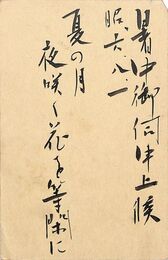 暑中御伺申上候
昭六、八、一
夏の月
夜咲く花を等閑に